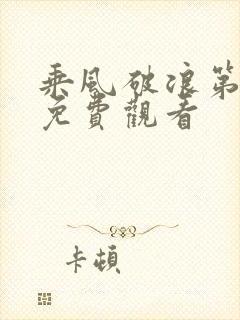 乘风破浪第
免費觀看
卡頓